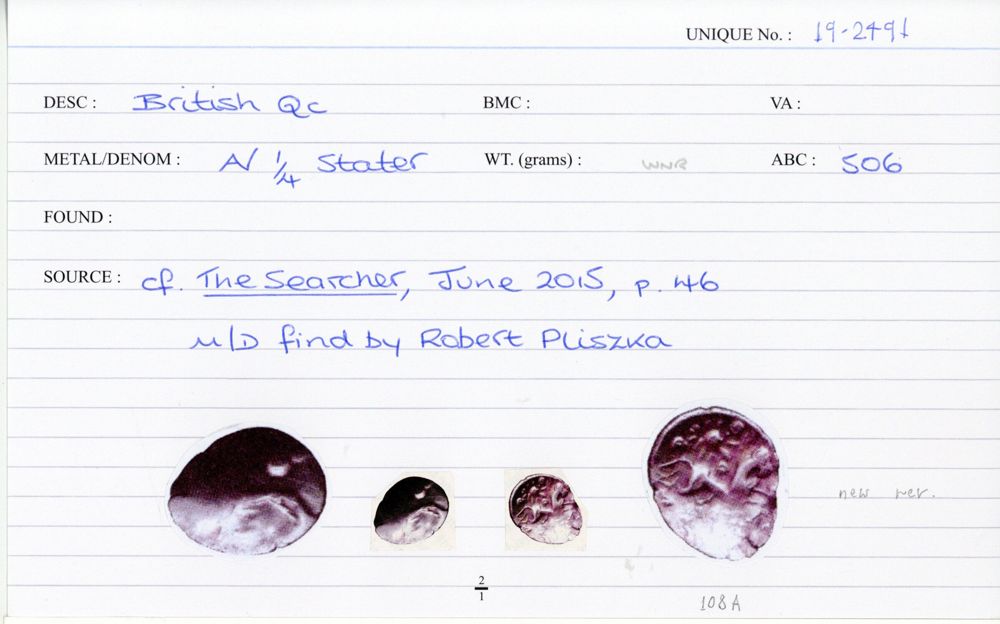 UNIQUE No. : 19-2491
DESC : British Qc BMC : VA :
METAL/DENOM : A/ 1/4 Stater WT. (grams) : WNR ABC : 506
FOUND :
SOURCE : cf. The Searcher, June 2015, p. 46
M/D find by Robert Pliszka
new rev.
2/1
108A